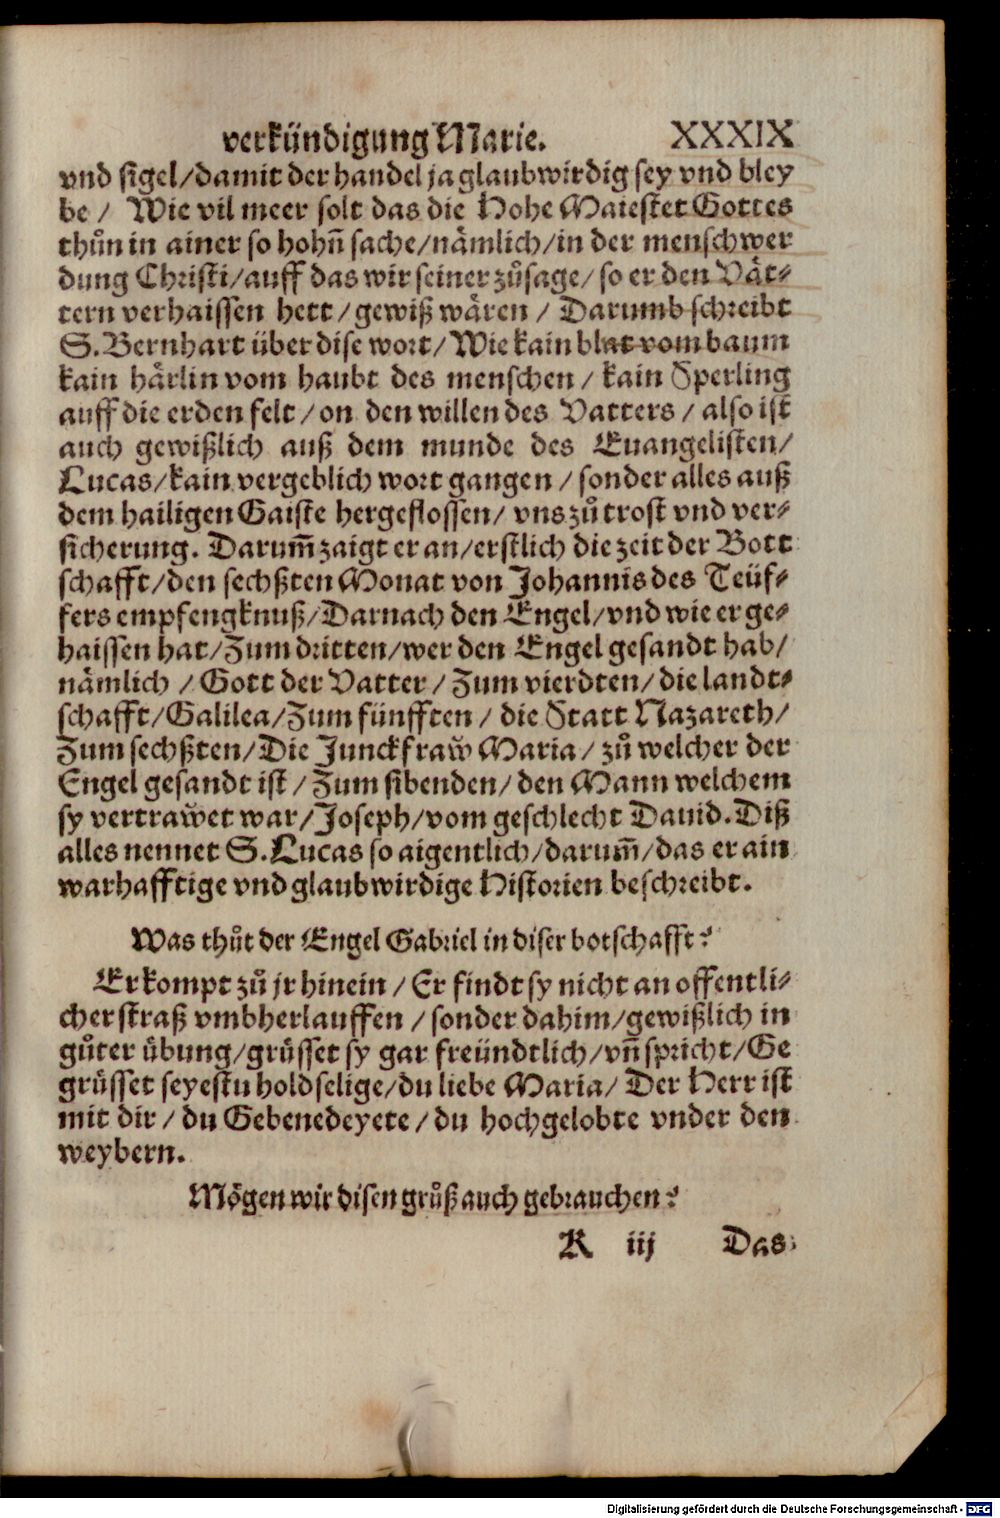 verkündigung Marie. XXXIX
vnd sigel/damit der handel ja glaubwirdig sey vnd bley
be / Wie vil meer solt das die Hohe Maiestet Gottes
thůn in ainer so hohñ sache/nämlich/in der menschwer
dung Christi/auff das wir seiner zůsage/ so er den Vät-
tern verhaissen hett/gewiß wären / Darumb schreibt
S. Bernhart über dise wort/Wie kain blat vom baum
kain härlin vom haubt des menschen / kain Sperling
auff die erden felt/on den willen des Vatters / also ist
auch gewißlich auß dem munde des Euangelisten/
Lucas/kain vergeblich wort gangen / sonder alles auß
dem hailigen Gaiste hergeflossen/ vns zů trost vnd ver-
sicherung. Darum̃ zaigt er an/erstlich die zeit der Bott
schafft/den sechßten Monat von Johannis des Teüf-
fers empfengknuß/Darnach den Engel/vnd wie er ge-
haissen hat/Zum dritten/wer den Engel gesandt hab/
nämlich / Gott der Vatter / Zum vierdten/die landt-
schafft/Galilea/Zum fünfften / die Statt Nazareth/
Zum sechßten/Die Junckfraw̆ Maria / zů welcher der
Engel gesandt ist / Zum sibenden/ den Mann welchem
sy vertraw̆et war/Joseph/vom geschlecht Dauid. Diß
alles nennet S. Lucas so aigentlich/darum̃/das er ain
warhafftige vnd glaubwirdige Historien beschreibt.
Was thůt der Engel Gabriel in diser botschafft?
Er kompt zů jr hinein / Er findt sy nicht an offentli-
cher straß vmbherlauffen / sonder dahim/gewißlich in
gůter übung/grüsset sy gar freündtlich/vñ spricht/Ge
grüsset seyestu holdselige/du liebe Maria/ Der Herr ist
mit dir / du Gebenedeyete / du hochgelobte vnder den
weybern.
Mögen wir disen grůß auch gebrauchen?
K iij Das
Digitalisierung gefördert durch die Deutsche Forschungsgemeinschaft - DFG